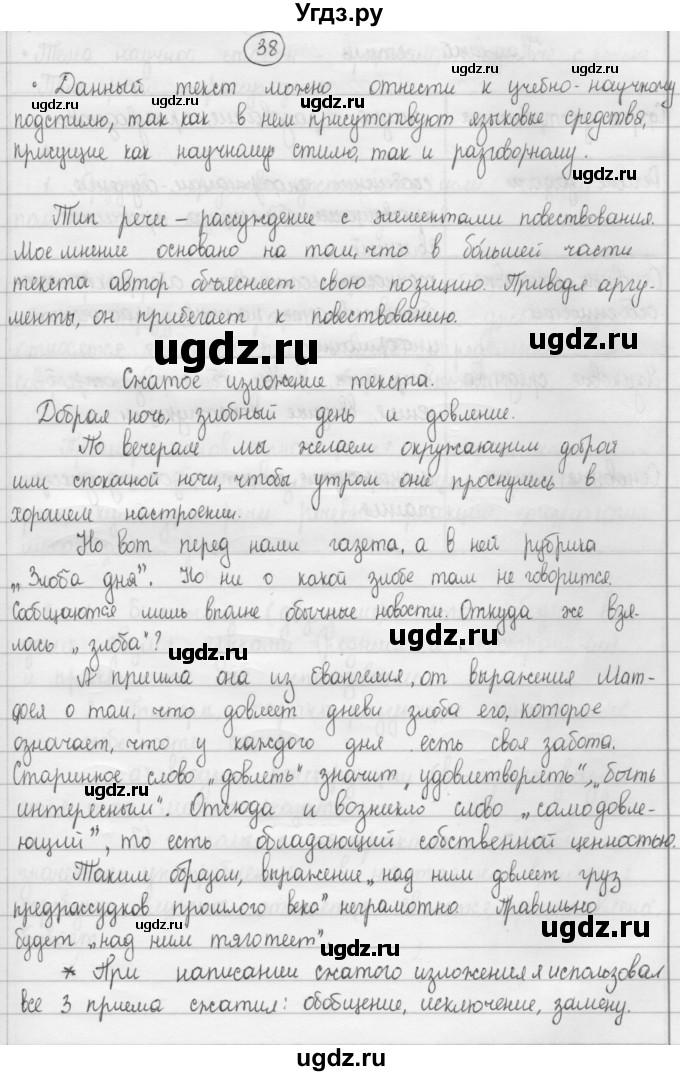 Угдз.ру
38
• Данный текст можно отнести к учебно-научному
подстилю, так как в нем присутствуют языковые средства,
присущие как научному стилю, так и разговорному.
Тип речи – рассуждение с элементами повествования.
Мое мнение основано на том, что в бо́льшей части
текста автор объясняет свою позицию. Приводя аргу-
менты, он прибегает к повествованию.
Сжатое изложение текста.
Добрая ночь, злобный день и довление.
По вечерам мы желаем окружающим доброй
или спокойной ночи, чтобы утром они проснулись в
хорошем настроении.
Но вот перед нами газета, а в ней рубрика
„Злоба дня". Но ни о какой злобе там не говорится.
Сообщаются лишь вполне обычные новости. Откуда же взя-
лась „злоба"?
А пришла она из Евангелия, от выражения Мат-
фея о том, что довлеет дневи злоба его, которое
означает, что у каждого дня есть своя забота.
Старинное слово „довлеть" значит „удовлетворять", „быть
интересным". Отсюда и возникло слово „самодовле-
ющий", то есть обладающий собственной ценностью.
Таким образом, выражение „над ним довлеет груз
предрассудков прошлого века" неграмотно. Правильно
будет „над ним тяготеет"
* При написании сжатого изложения я использовал
все 3 приема сжатия: обобщение, исключение, замену.
ugdz.ru